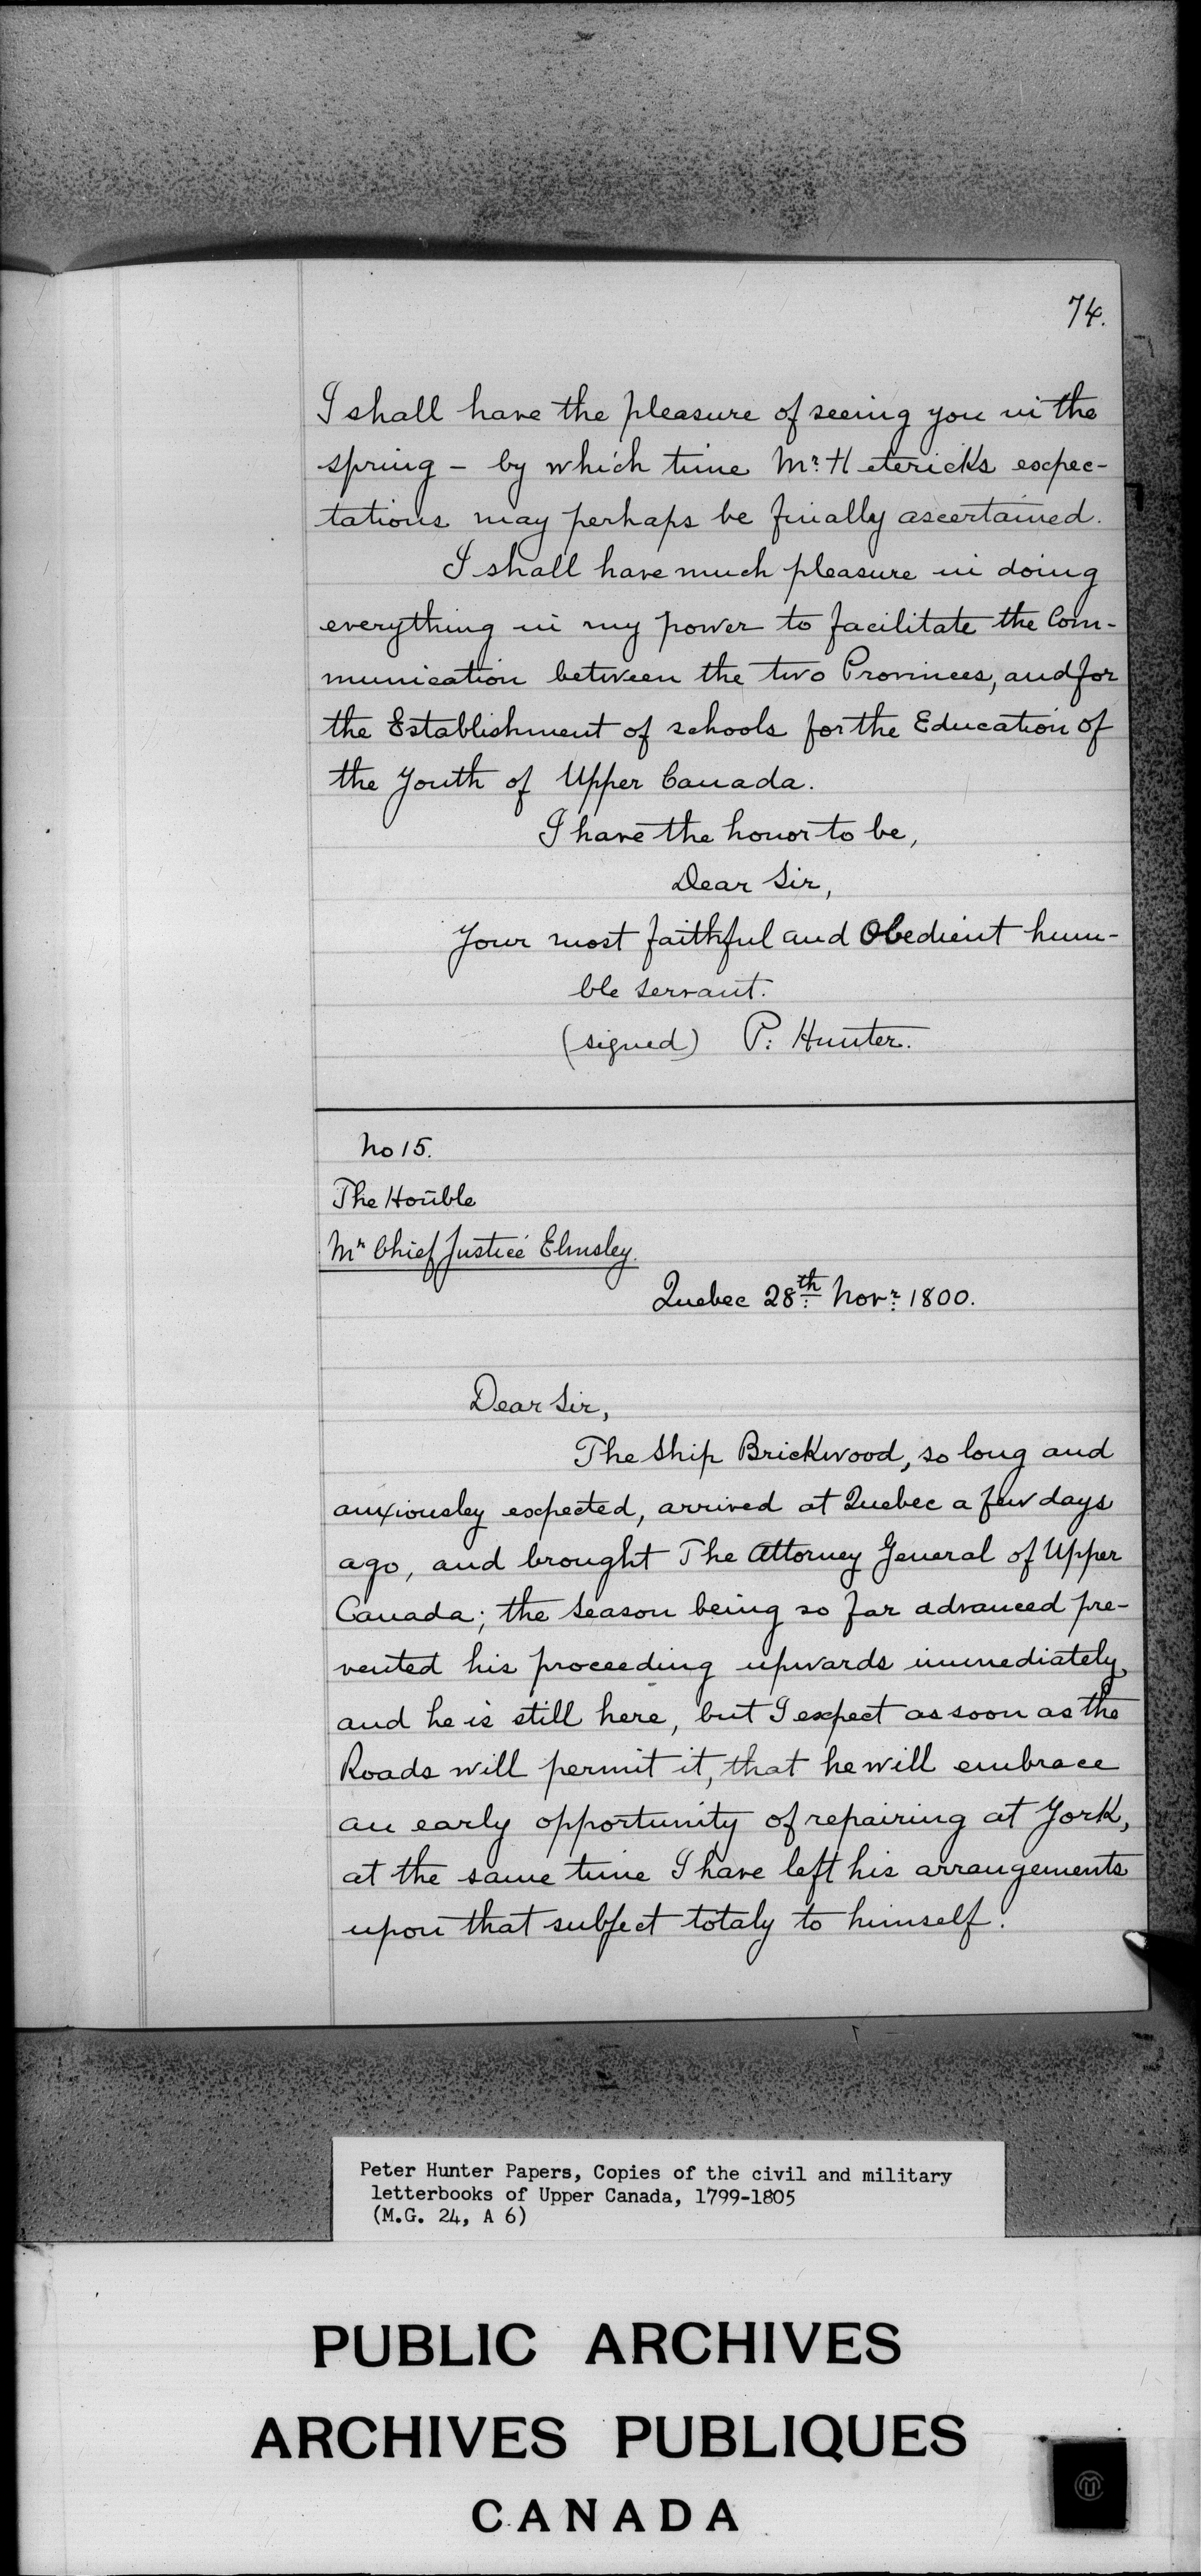 74.
I shall have the pleasure of seeing you in the
spring - by which time Mr. Hetericks expec-
tations may perhaps be finally ascertained.
I shall have much pleasure in doing
everything in my power to facilitate the Com-
munication between the two Provinces, and for
the Establishment of schools for the Education of
the Youth of Upper Canada.
I have the honor to be,
Dear Sir,
Your most faithful and Obedient hum-
ble servant.
(signed) P. Hunter.
No 15.
The Honble
Mr Chief Justice Elmsley.
Quebec 28th Novr. 1800.
Dear Sir,
The Ship Brickwood, so long and
anxiousley expected, arrived at Quebec a few days
ago, and brought The Attorney General of Upper
Canada; the Season being so far advanced pre-
vented his proceeding upwards immediately,
and he is still here, but I expect as soon as the
Roads will permit it, that he will embrace
an early opportunity of repairing at York,
at the same time I have left his arrangements
upon that subject totaly to himself.
Peter Hunter Papers, Copies of the civil and military
letterbooks of Upper Canada, 1799-1805
(M.G. 24, A 6)
PUBLIC ARCHIVES
ARCHIVES PUBLIQUES
CANADA